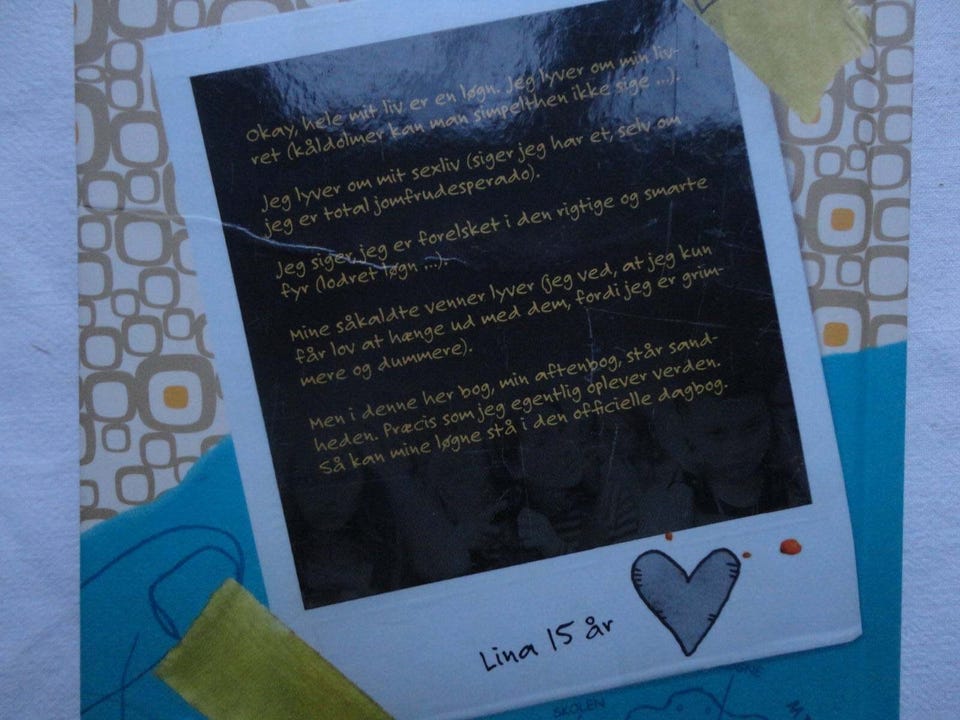 Okay, hele mit liv er en løgn. Jeg lyver om min liv-
ret (kåldolmer kan man simpelthen ikke sige ...).
Jeg lyver om mit sexliv (siger jeg har et, selv om
jeg er total jomfrudesperado).
Jeg siger, jeg er forelsket i den rigtige og smarte
fyr (lodret løgn ...).
Mine såkaldte venner lyver (jeg ved, at jeg kun
får lov at hænge ud med dem, fordi jeg er grim-
mere og dummere).
Men i denne her bog, min aftenbog, står sand-
heden. Præcis som jeg egentlig oplever verden.
Så kan mine løgne stå i den officielle dagbog.
Lina 15 år
SKOLEN